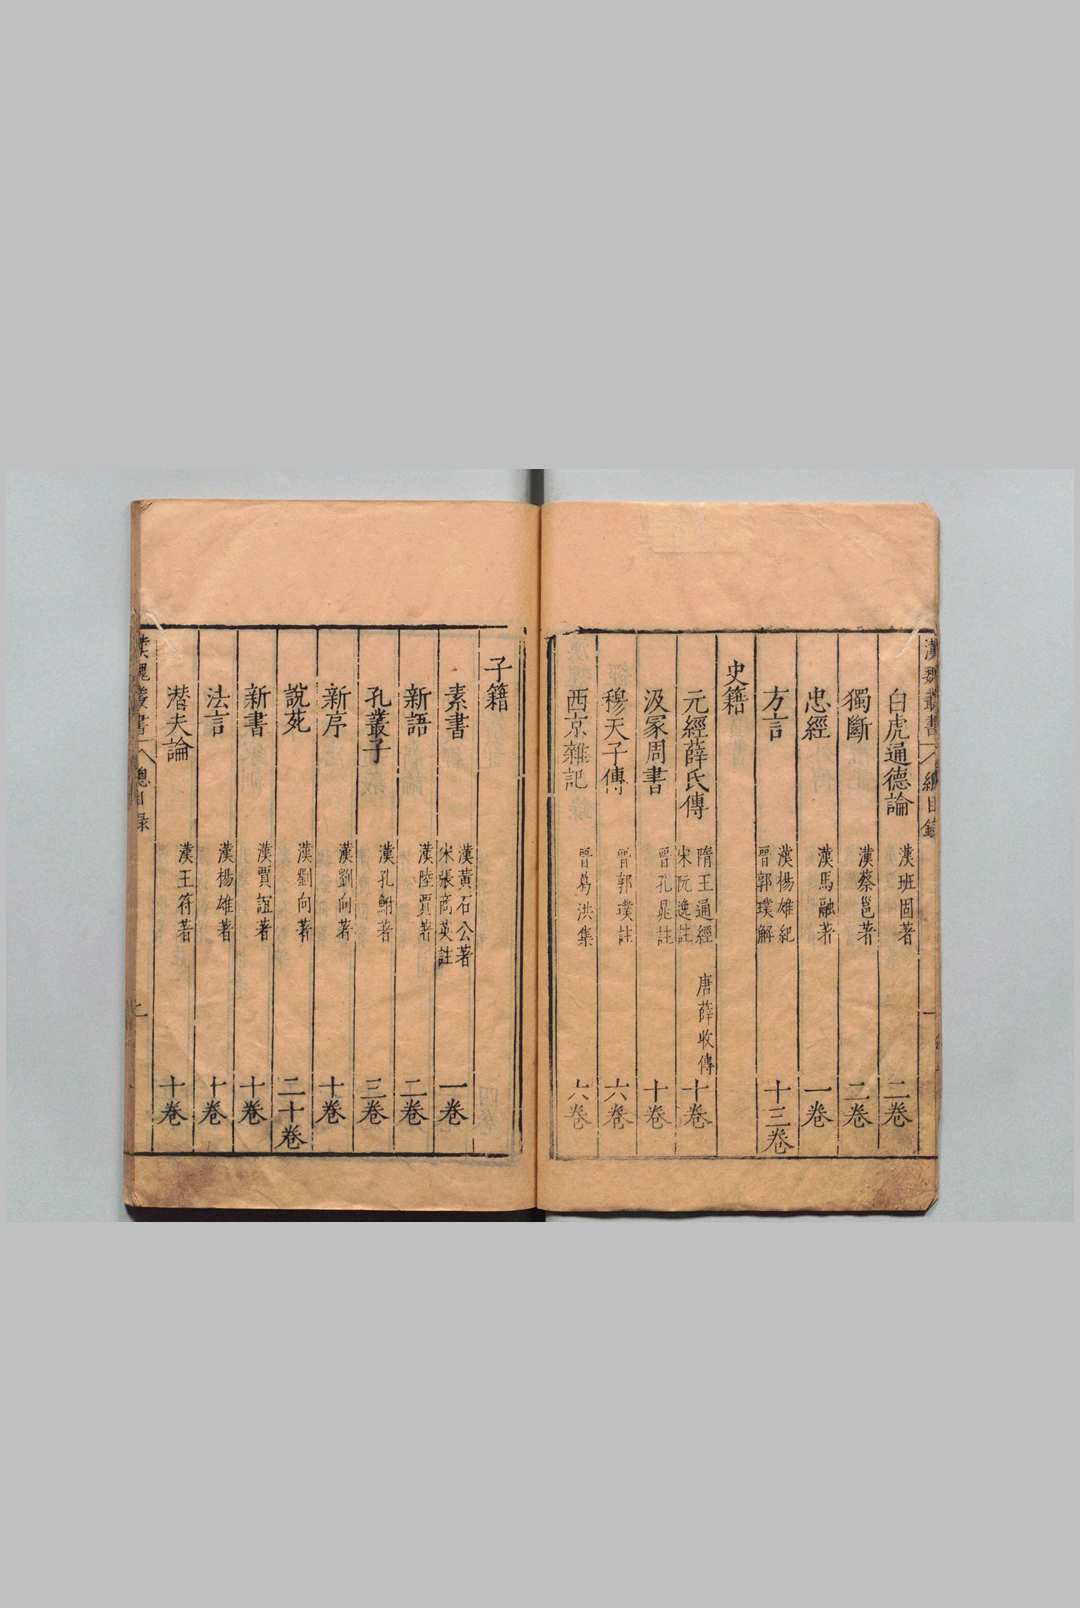 漢魏叢書 總目錄 一
白虎通德論 漢班固著 二卷
獨斷 漢蔡邕著 二卷
忠經 漢馬融著 一卷
方言 漢楊雄紀 晉郭璞解 十三卷
史籍
元經薛氏傳 隋王通經 唐薛收傳 宋阮逸註 十卷
汲冢周書 晉孔晁註 十卷
穆天子傳 晉郭璞註 六卷
西京雜記 晉葛洪集 六卷
子籍
素書 漢黃石公著 宋張商英註 一卷
新語 漢陸賈著 二卷
孔叢子 漢孔鮒著 三卷
新序 漢劉向著 十卷
說苑 漢劉向著 二十卷
新書 漢賈誼著 十卷
法言 漢楊雄著 十卷
潜夫論 漢王符著 十卷
漢魏叢書 總目錄